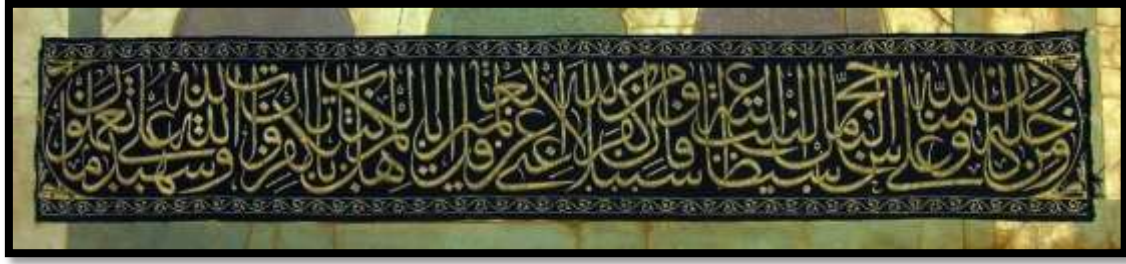 ومن دخله كان آمنا ولله على الناس حج البيت من استطاع إليه سبيلا ومن كفر فإن الله غني عن العالمين قل يا أهل الكتاب لم تكفرون بآيات الله والله شهيد على ما تعملون